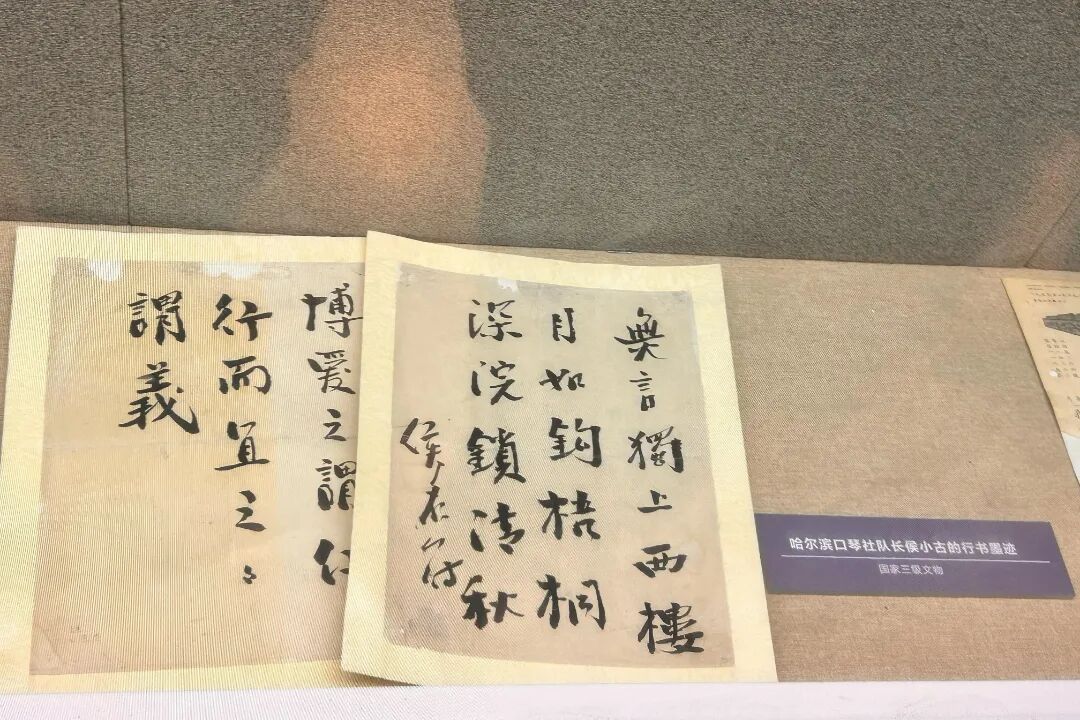 無言獨上西樓
月如鈎梧桐
深院鎖清秋
侯
博愛之謂仁
行而宜之〻
謂義
哈尔滨口琴社队长侯小古的行书墨迹
国家三级文物